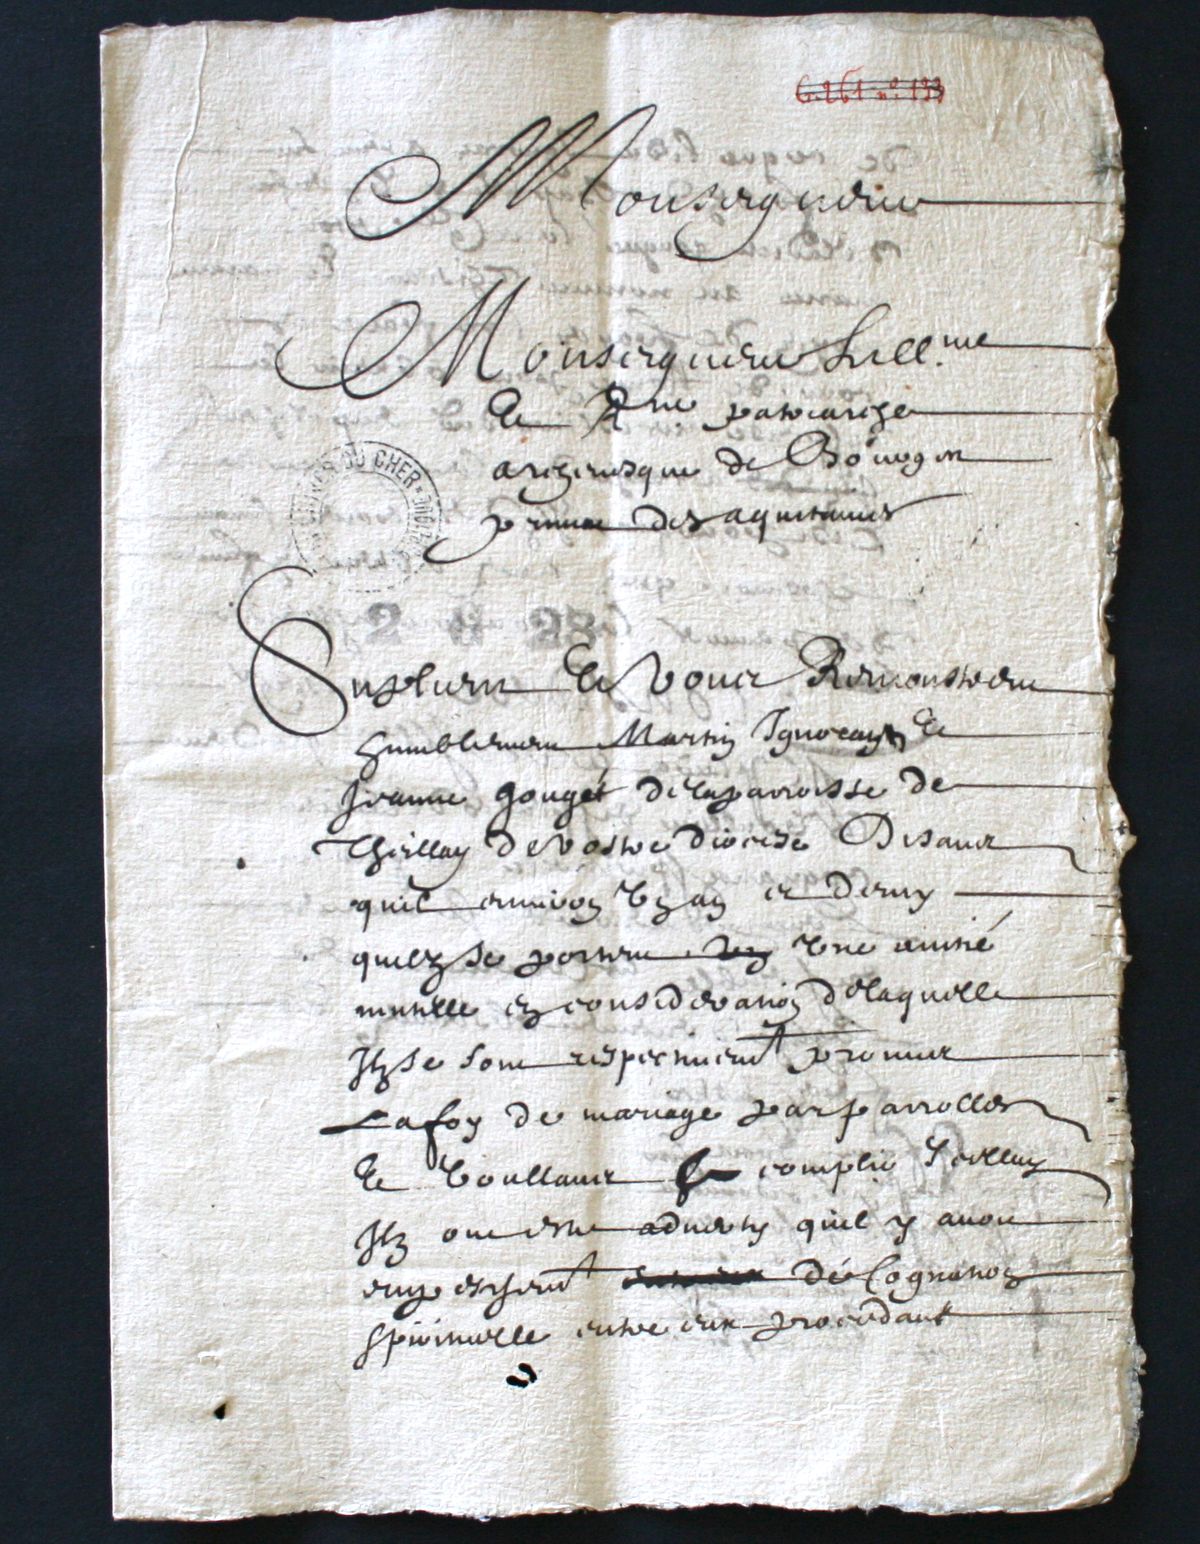 G. 261 n° 133
Monseigneur
Monseigneur Lill.me
Et R.me patriarche
archevesque de Bourges
primat des aquitaines
ARCHIVES DU CHER
2 G 28
Suplient Et Vous Remonstrent
humblement Martin Et
Jeanne Gouget de la parroisse de
Thillay de vostre diocese Disant
quil environ Un an et demy
quilz se portent Une amitié
mutuelle en consideration de laquelle
Ilz se sont respectivemt promis
La foy de mariage par parrolles
Et Voullant complir Icelluy
Ilz ont esté advertis quil y avoit
empeschemt de Cognation
spirituelle entre eux procedant